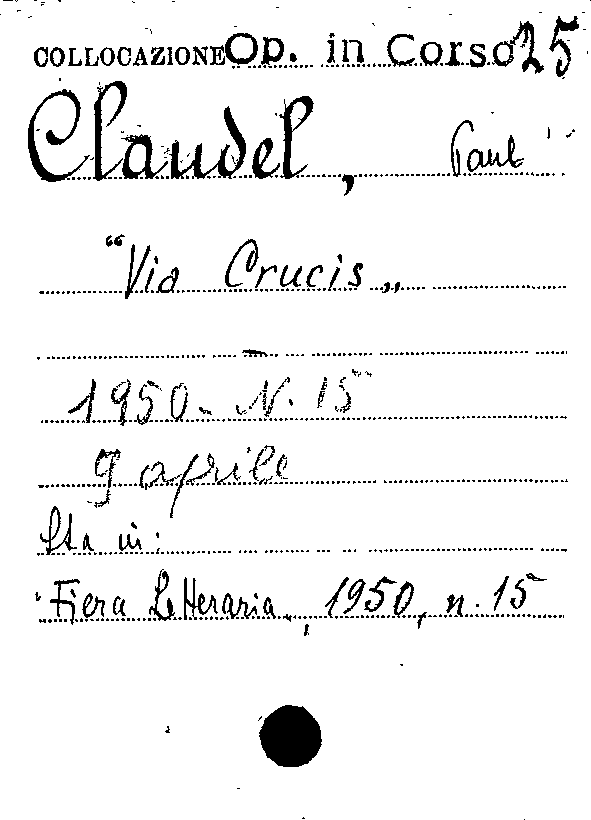 COLLOCAZIONE Op. in Corso 25
Claudel, Paul
"Via Crucis„
1950 - N. 15
9 aprile
Sta in:
"Fiera Letteraria„, 1950, n. 15